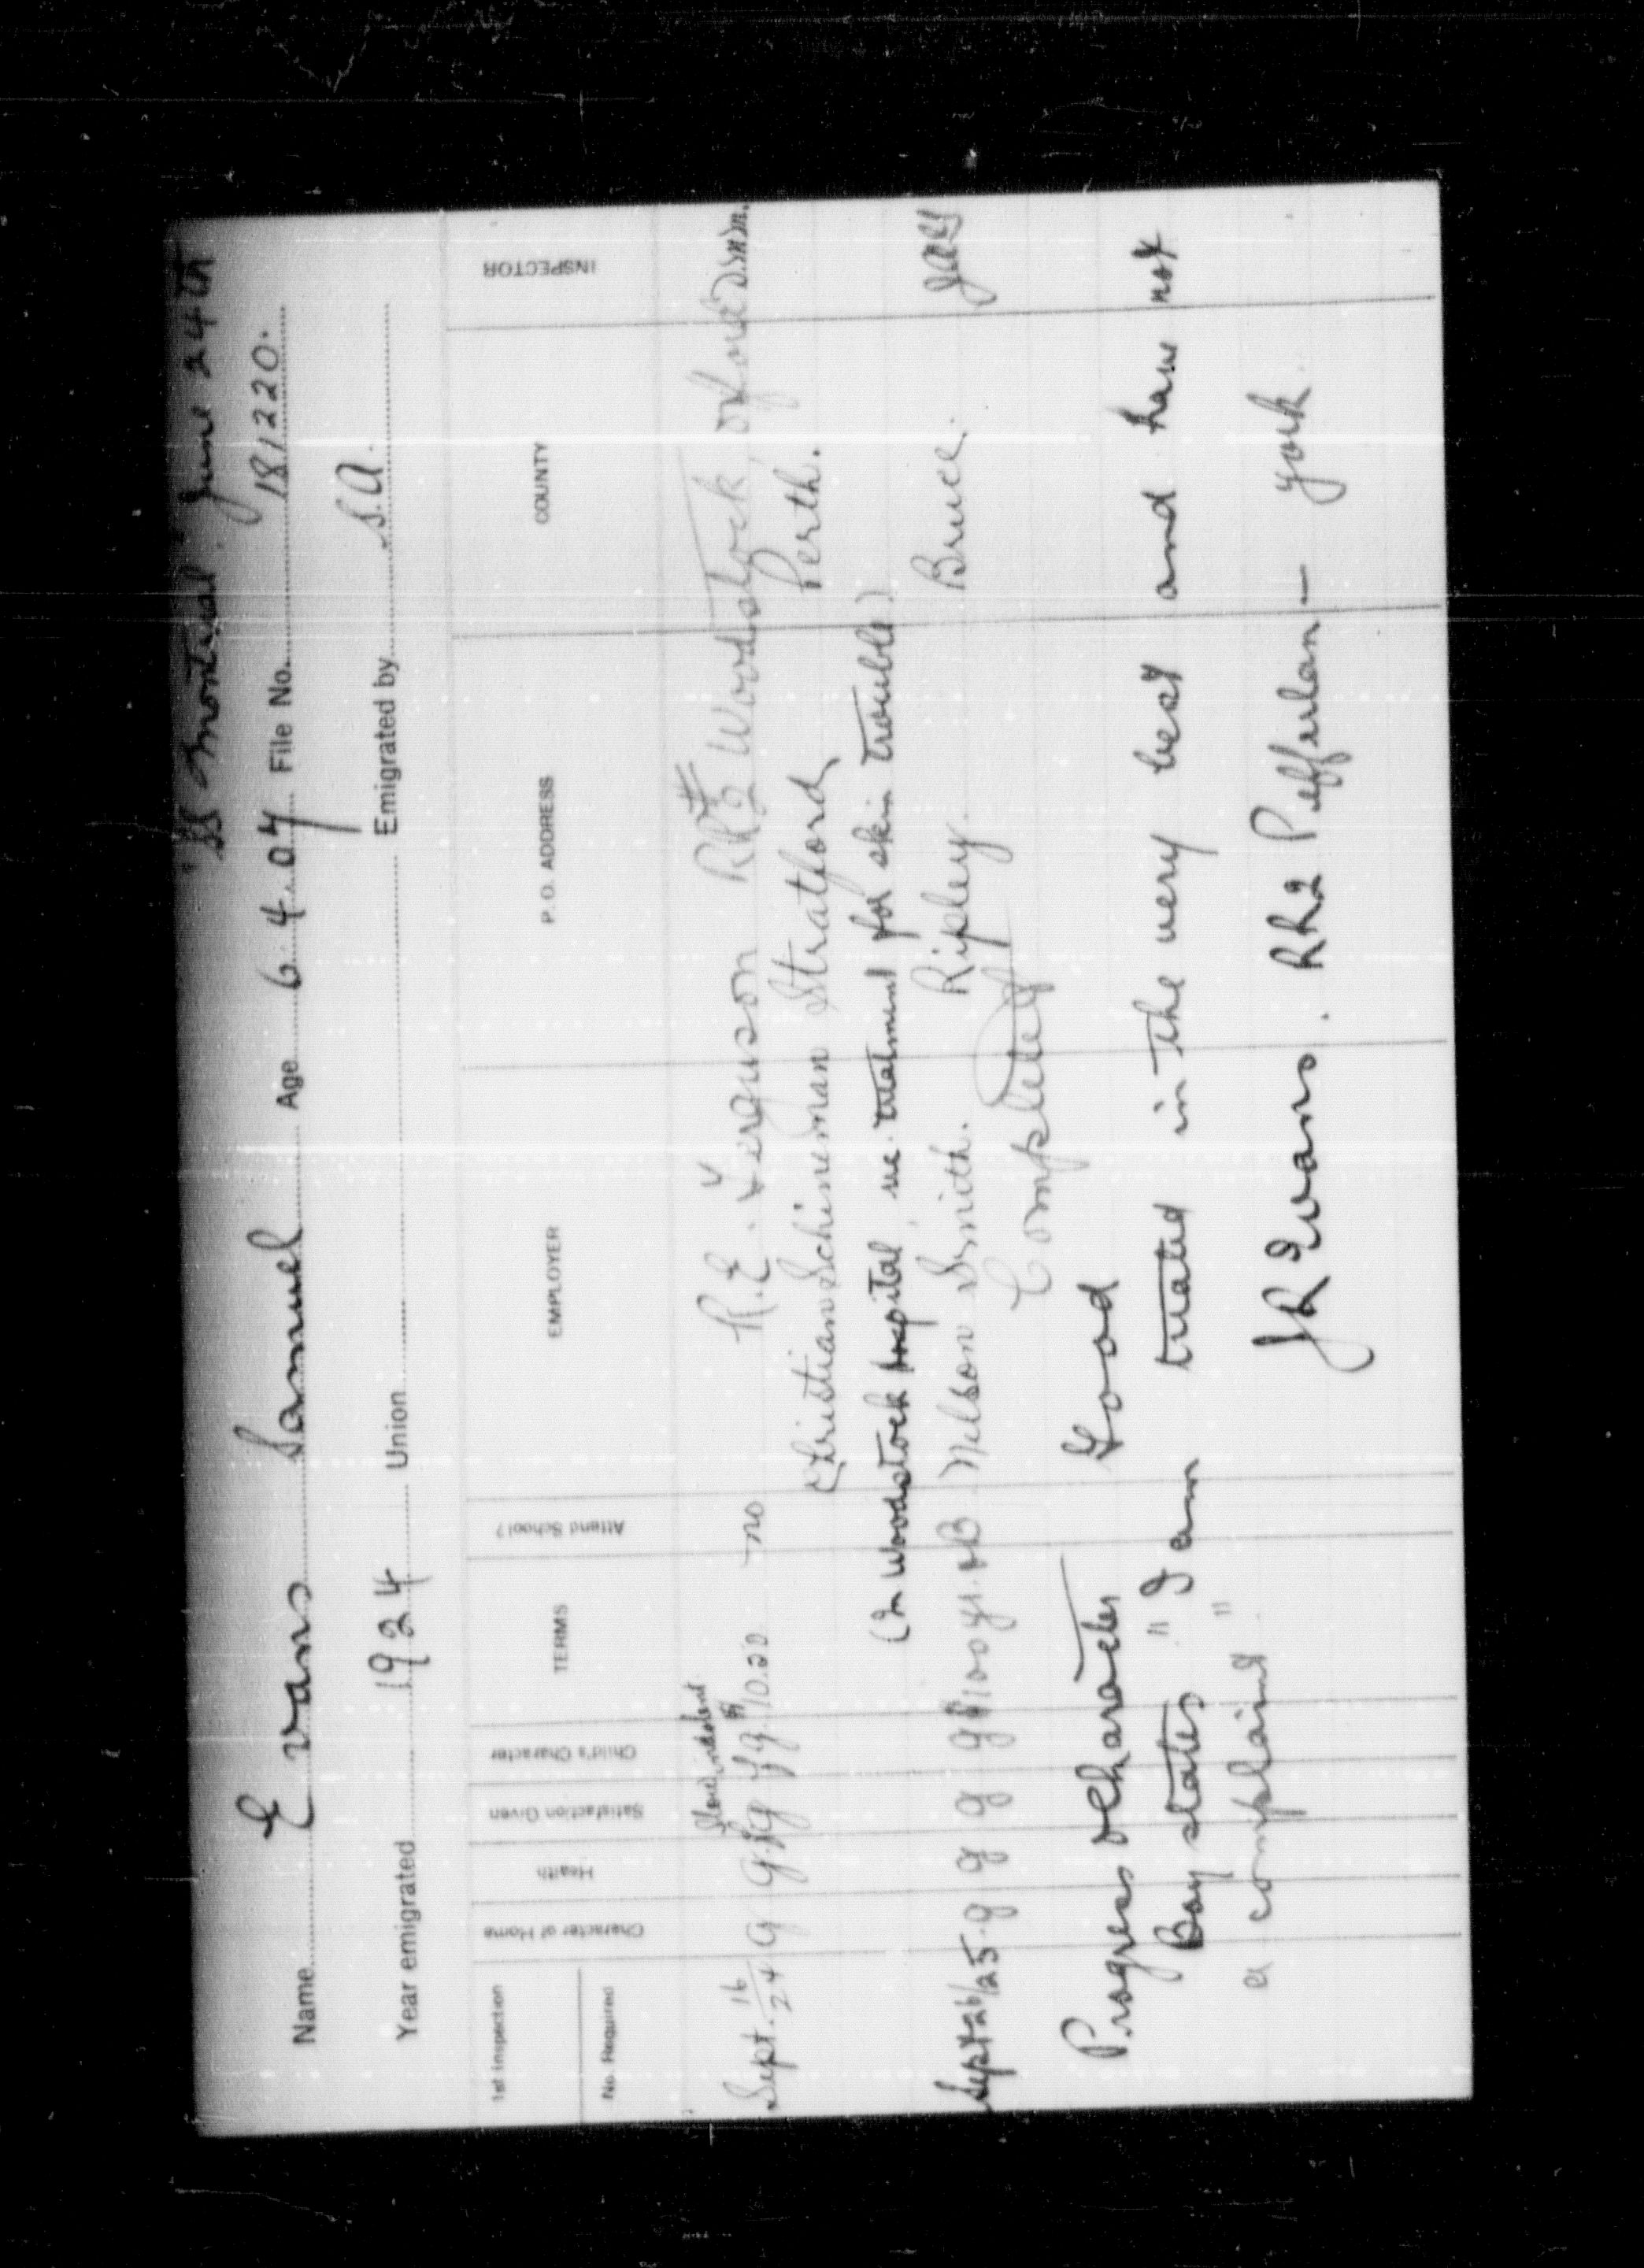 SS Montreal. June 24th
Name Evans Samuel Age 6.4.07 File No. 181220.
Year emigrated 1924 Union Emigrated by S.A.
1st Inspection
No. Required
Character of Home
Health
Satisfaction Given
Child's Character
TERMS
Attend School?
EMPLOYER
P. O. ADDRESS
COUNTY
INSPECTOR
Sept. 16/24 g g fg fg 10.00 no R.E. Ferguson RR#2 Woodstock, Oxford
Christian Schineman Stratford Perth.
(In Woodstock hospital, treatment for skin trouble)
Sept 26/25 g g g g $100 yr. Nelson Smith. Ripley. Bruce.
Completed
Progress & Character Good
Boy states "I am treated in the very best and have not
a complaint"
JR Evans. RR2 Pefferlaw — York.